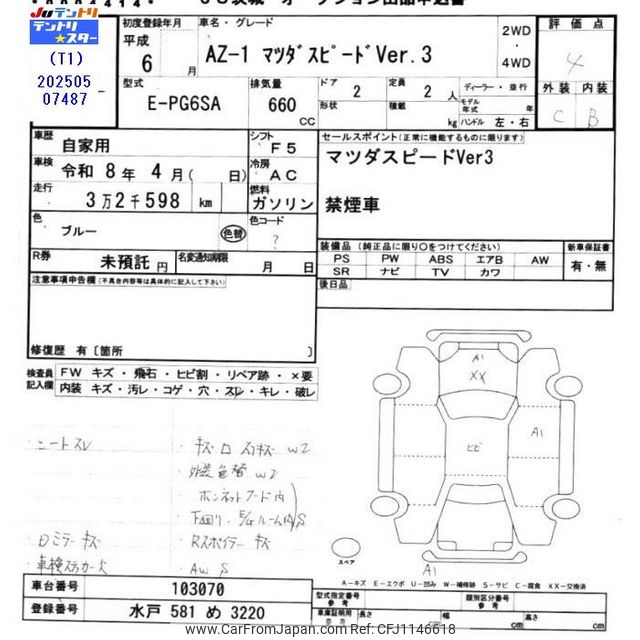 JUテントリ
テントリ★スター
(T1)
202505
07487
初度登録年月 車名・グレード 2WD 評価点
平成 6 月 AZ-1 マツダスピードVer.3 ・ 4WD 4
型式 排気量 ドア 2 定員 2 人 ディーラー・並行 外装 内装
E-PG6SA 660 CC 形状 積載 kg モデル年式 年 ハンドル 左・右 C B
車歴 自家用 シフト F5 セールスポイント(正常に機能するものに限ります)
車検 令和 8年 4月( 日) 冷房 AC マツダスピードVer3
走行 3万2千598 km 燃料 ガソリン 禁煙車
色 ブルー 色替 色コード ?
装備品 (純正品に限り〇をつけてください) 新車保証書
PS PW ABS エアB AW 有・無
SR ナビ TV カワ
R券 未預託 円 名変通知期限 月 日
後日品
注意事項申告欄(不具合内容等は具体的に記入して下さい)
修復歴 有〔箇所 〕
検査員記入欄 FW キズ・飛石・ヒビ割・リペア跡・×要
内装 キズ・汚レ・コゲ・穴・スレ・キレ・破レ
A1
XX
A1
ヒビ
シートスレ
キズ W2
外装色替 W2
ボンネットフード内
下回り、E/gルーム内 S
Dミラーキズ
Rスポイラーキズ
車検ステッカー欠
AW S
スペア
A1
A-キズ E-エクボ U-凹み W-補修跡 S-サビ C-腐食 XX-交換済
車台番号 103070
登録番号 水戸 581 め 3220
型式指定番号 参考 類別区分番号 参考
車庫証明用 参考 長さ cm 幅 cm 高さ cm
www.CarFromJapan.com Ref:CFJ1146618